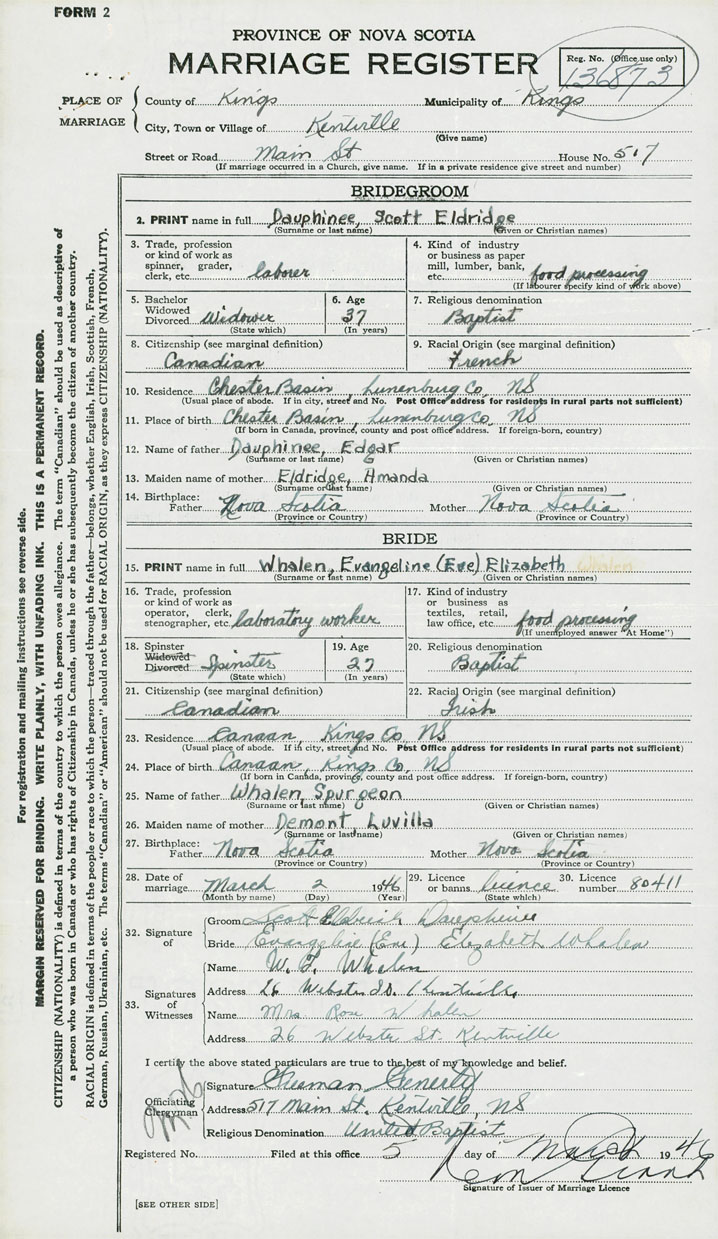 FORM 2
PROVINCE OF NOVA SCOTIA
MARRIAGE REGISTER
Reg. No. (Office use only)
136873
PLACE OF MARRIAGE
County of Kings Municipality of Kings
City, Town or Village of Kentville
(Give name)
Street or Road Main St House No. 517
(If marriage occurred in a Church, give name. If in a private residence give street and number)
BRIDEGROOM
2. PRINT name in full Dauphinee, Scott Eldridge
(Surname or last name) (Given or Christian names)
3. Trade, profession or kind of work as spinner, grader, clerk, etc. laborer
4. Kind of industry or business as paper mill, lumber, bank, etc. food processing
(If labourer specify kind of work above)
5. Bachelor Widowed Divorced Widower
(State which)
6. Age 37
(In years)
7. Religious denomination
Baptist
8. Citizenship (see marginal definition)
Canadian
9. Racial Origin (see marginal definition)
French
10. Residence Chester Basin, Lunenburg Co, NS
(Usual place of abode. If in city, street and No. Post Office address for residents in rural parts not sufficient)
11. Place of birth Chester Basin, Lunenburg Co, NS
(If born in Canada, province, county and post office address. If foreign-born, country)
12. Name of father Dauphinee, Edgar
(Surname or last name) (Given or Christian names)
13. Maiden name of mother Eldridge, Amanda
(Surname or last name) (Given or Christian names)
14. Birthplace: Father Nova Scotia Mother Nova Scotia
(Province or Country) (Province or Country)
BRIDE
15. PRINT name in full Whalen, Evangeline (Eve) Elizabeth Whalen
(Surname or last name) (Given or Christian names)
16. Trade, profession or kind of work as operator, clerk, stenographer, etc. laboratory worker
17. Kind of industry or business as textiles, retail, law office, etc. food processing
(If unemployed answer "At Home")
18. Spinster Widowed Divorced Spinster
(State which)
19. Age 27
(In years)
20. Religious denomination
Baptist
21. Citizenship (see marginal definition)
Canadian
22. Racial Origin (see marginal definition)
Irish
23. Residence Canaan, Kings Co, NS
(Usual place of abode. If in city, street and No. Post Office address for residents in rural parts not sufficient)
24. Place of birth Canaan, Kings Co, NS
(If born in Canada, province, county and post office address. If foreign-born, country)
25. Name of father Whalen, Spurgeon
(Surname or last name) (Given or Christian names)
26. Maiden name of mother Demont, Luvilla
(Surname or last name) (Given or Christian names)
27. Birthplace: Father Nova Scotia Mother Nova Scotia
(Province or Country) (Province or Country)
28. Date of marriage March 2 1946
(Month by name) (Day) (Year)
29. Licence or banns licence
(State which)
30. Licence number 80411
32. Signature of
Groom Scott Eldridge Dauphinee
Bride Evangeline (Eve) Elizabeth Whalen
33. Signatures of Witnesses
Name Whalen
Address 26 Webster St. Kentville
Name Mrs. Rose Whalen
Address 26 Webster St. Kentville
I certify the above stated particulars are true to the best of my knowledge and belief.
Officiating Clergyman
Signature
Address 517 Main St. Kentville, NS
Religious Denomination United Baptist
Registered No. Filed at this office 5 day of March 1946
Signature of Issuer of Marriage Licence
[SEE OTHER SIDE]
For registration and mailing instructions see reverse side.
MARGIN RESERVED FOR BINDING. WRITE PLAINLY, WITH UNFADING INK. THIS IS A PERMANENT RECORD.
CITIZENSHIP (NATIONALITY) is defined in terms of the country to which the person owes allegiance. The term "Canadian" should be used as descriptive of
a person who was born in Canada or who has rights of Citizenship in Canada, unless he or she has subsequently become the citizen of another country.
RACIAL ORIGIN is defined in terms of the people or race to which the person—traced through the father—belongs, whether English, Irish, Scottish, French,
German, Russian, Ukrainian, etc. The terms "Canadian" or "American" should not be used for RACIAL ORIGIN, as they express CITIZENSHIP (NATIONALITY).